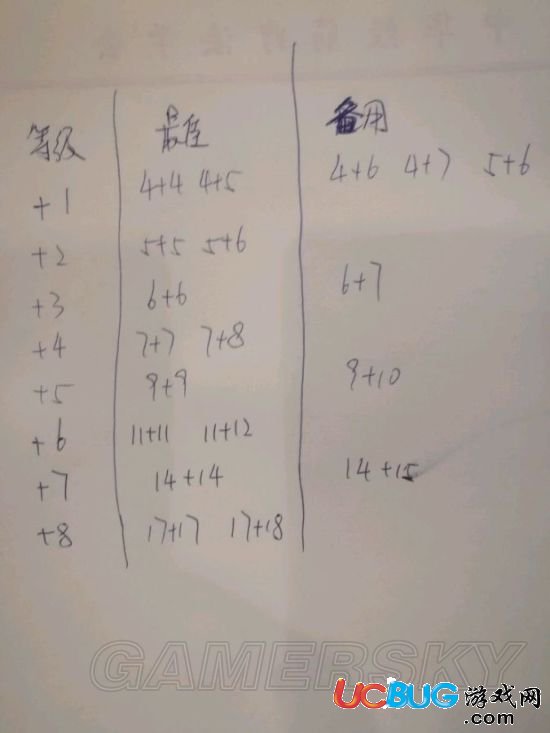 等级 最佳 备用
+1 4+4 4+5 4+6 4+7 5+6
+2 5+5 5+6
+3 6+6 6+7
+4 7+7 7+8
+5 9+9 9+10
+6 11+11 11+12
+7 14+14 14+15
+8 17+17 17+18
GAMERSKY
UCBUG游戏网
.com